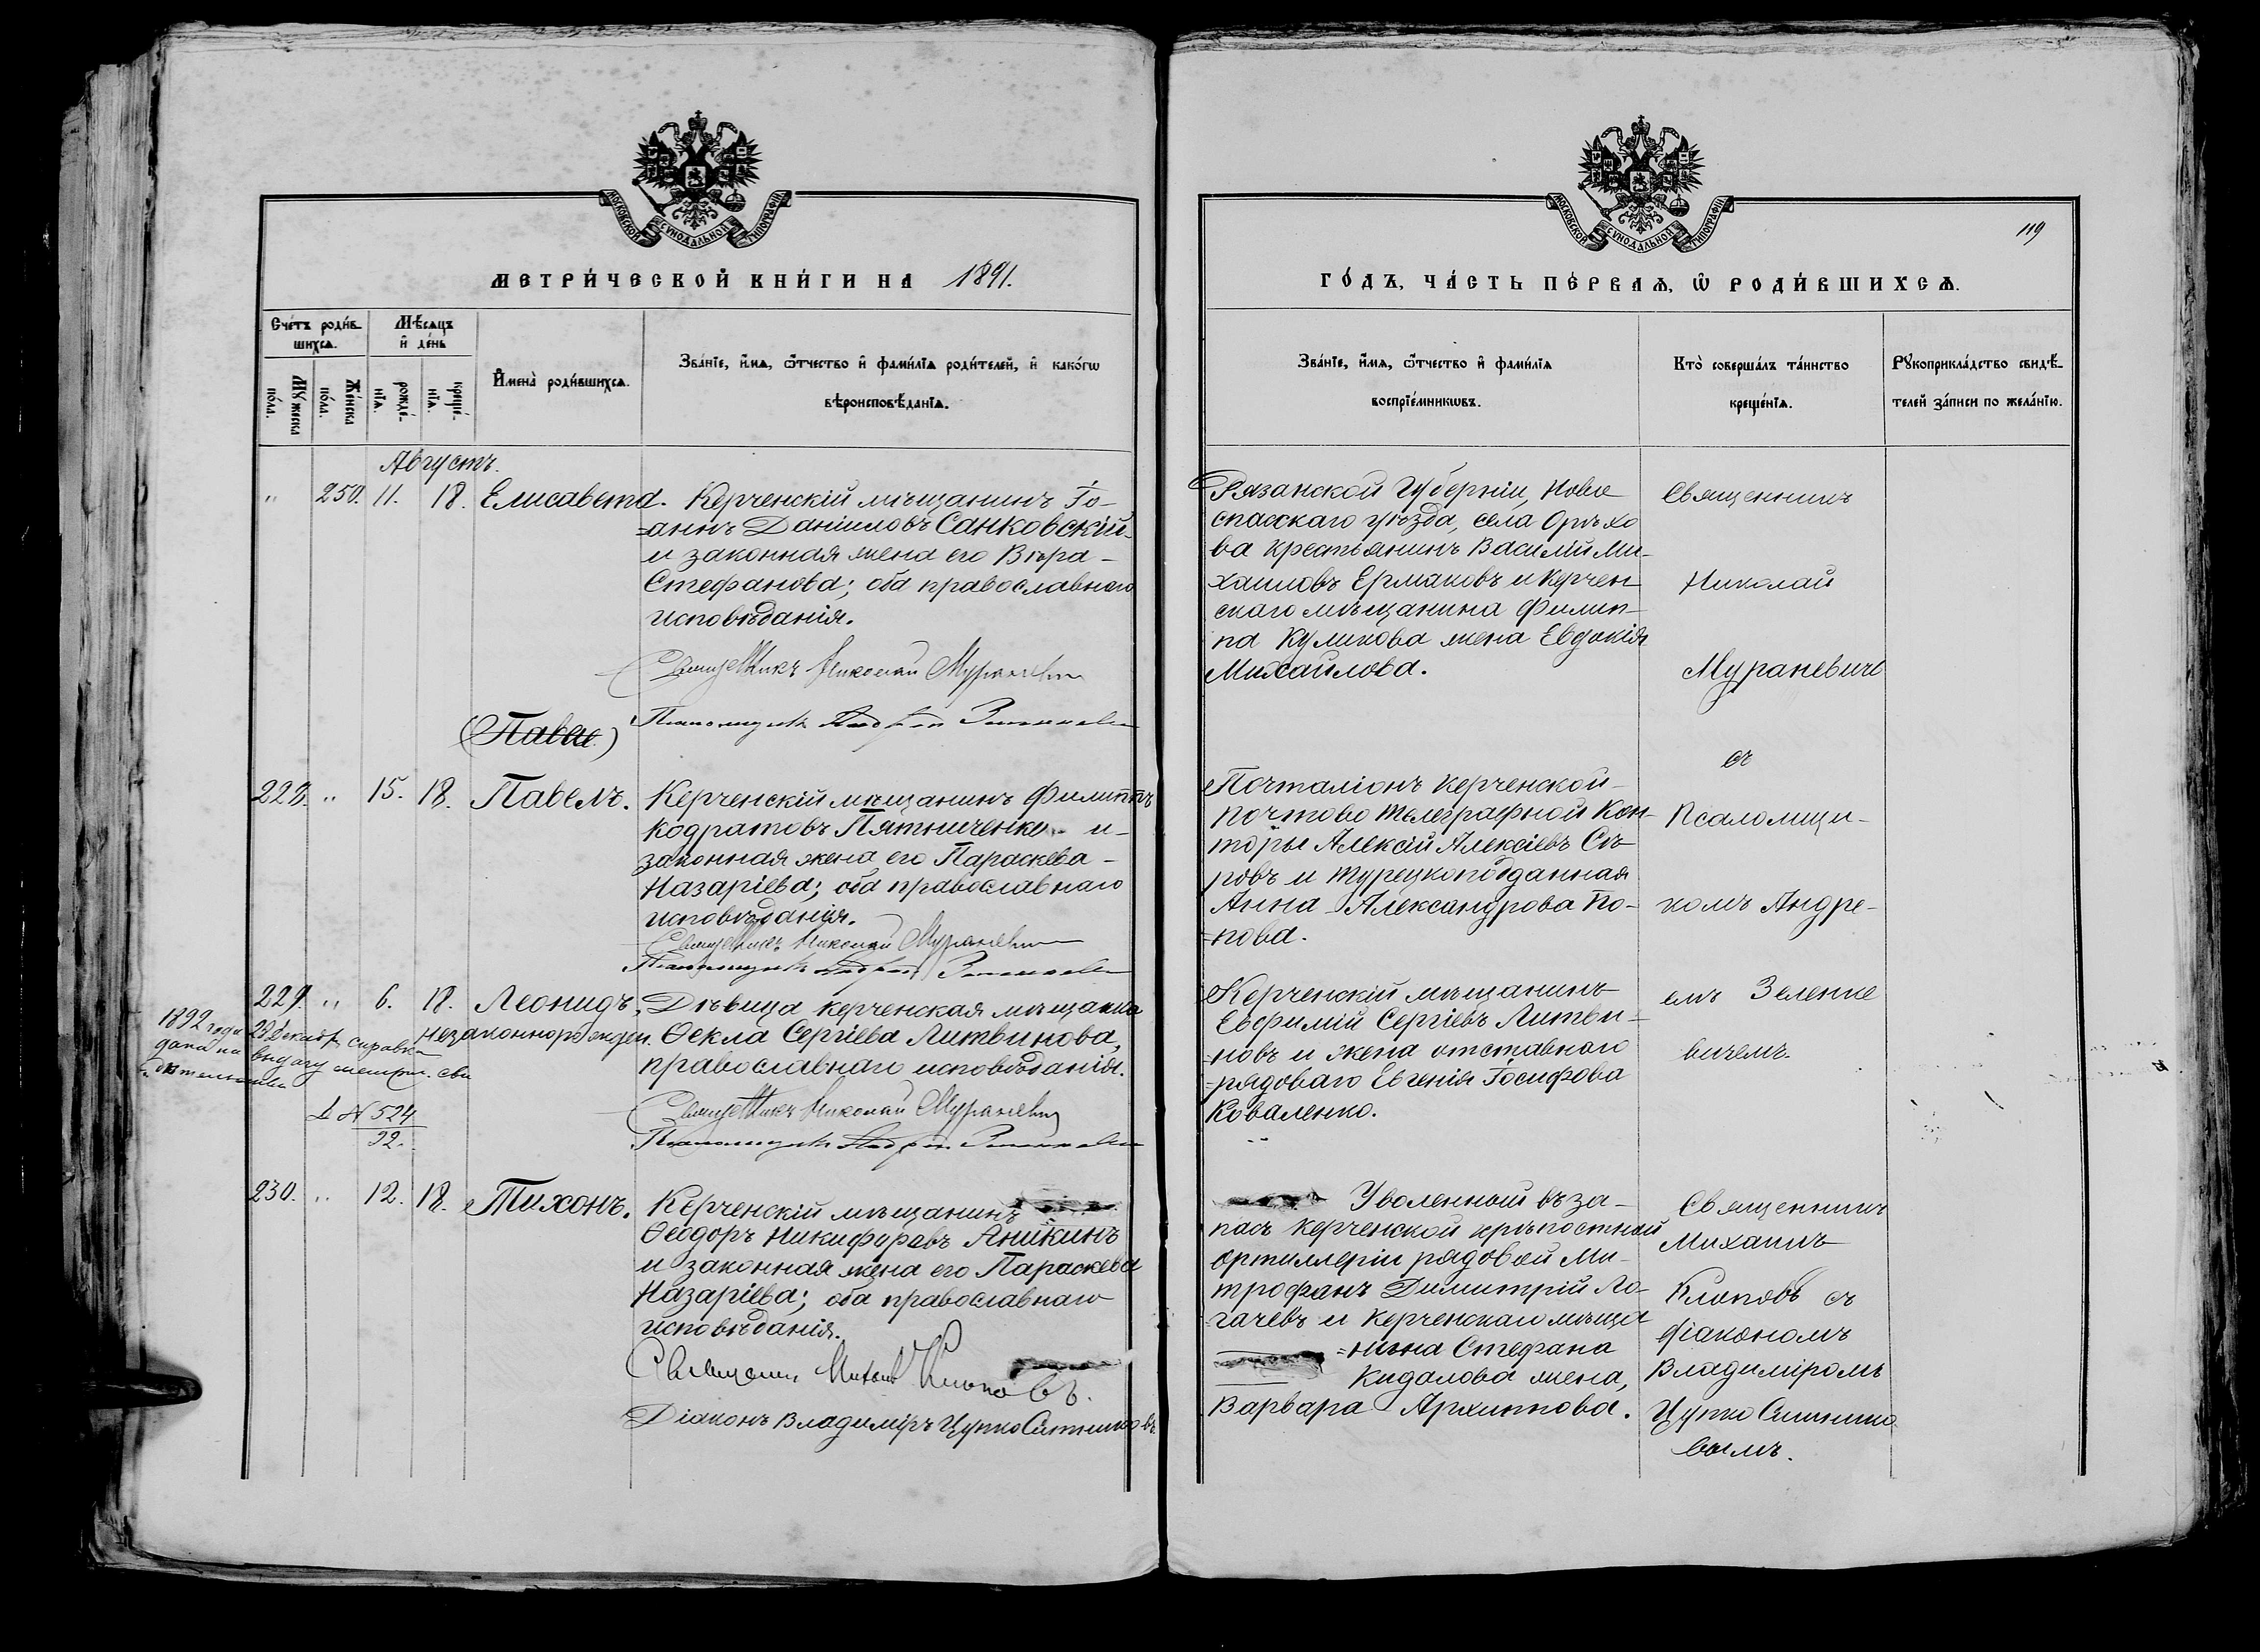 МОСКОВСКОЙ СѴНОДАЛЬНОЙ ТИПОГРАФІИ
МЕТРИ́ЧЕСКОЙ КНИ́ГИ НА 1891.
Сче́тъ роди́в-
шихсѧ.
Мѣ́сѧцъ
и҆ де́нь
Мꙋ́жеска
по́ла.
Же́нска
по́ла.
рожде́-
нїѧ.
креще́-
нїѧ.
И҆мена̀ роди́вшихсѧ.
Зва́нїе, и҆́мѧ, ѻ҆́тчество и҆ фами́лїѧ роди́телей, и҆ како́гѡ
вѣроисповѣ́данїѧ.
Августъ.
" 250. 11. 18. Елисавета.
Керченскій мѣщанинъ Іо-
=аннъ Даніиловъ Санковскій
и законная жена его Вѣра -
Стефанова; оба православнаго
исповѣданія.
Священникъ Николай Мураневичъ
Псаломщикъ Андрей Зеленкевичъ
(Павел)
228. " 15. 18. Павелъ.
Керченскій мѣщанинъ Филиппъ
Кодратовъ Пятниченко и-
законная жена его Параскева -
Назаріева; оба православнаго
исповѣданія.
Священникъ Николай Мураневичъ
Псаломщикъ Андрей
229. " 6. 18. Леонидъ,
незаконнорожден.
Дѣвица керченская мѣщанка
Ѳекла Сергіева Литвинова,
православнаго исповѣданія.
Священникъ Николай Мураневичъ
Псаломщикъ Андрей
1892 года 28 Декабр справка
дана на выдачу метрич. сви
дѣтельства
№ 524
92.
230. " 12. 18. Тихонъ.
Керченскій мѣщанинъ
Ѳеодоръ Никифоровъ Аникинъ
и законная жена его Параскева
Назаріева; оба православнаго
исповѣданія.
Священник Михаил Клоповъ.
Діаконъ Владиміръ Цупко Ситниковъ
МОСКОВСКОЙ СѴНОДАЛЬНОЙ ТИПОГРАФІИ
119
ГО́ДЪ, ЧА́СТЬ ПЕ́РВАѦ, Ѡ҆ РОДИ́ВШИХСѦ.
Зва́нїе, и҆́мѧ, ѻ҆́тчество и҆ фами́лїѧ
воспрїе́мникѡвъ.
Кто̀ соверша́лъ та́инство
креще́нїѧ.
Рꙋкоприкла́дство свидѣ́-
телей за́писи по жела́нїю.
Рязанской Губерніи, Ново
спасскаго уѣзда, села Орѣхо
ва крестьянинъ Василій Ми-
хаиловъ Ермаковъ и Керчен
скаго мѣщанина Филип-
па Куликова жена Евдокія
Михаилова.
Священникъ
Николай
Мураневичъ
съ
Псаломщи-
комъ Андре-
емъ Зеленке
вичемъ.
Почталіонъ Керченской -
почтово телеграфной Кон-
торы Алексій Алексіевъ Сѣ-
ровъ и турецкоподданная
Анна - Александрова По-
=пова.
Керченскій мѣщанинъ
Евфимій Сергіевъ Литви-
=новъ и жена отставнаго
=рядоваго Евгенія Іосифова
Коваленко.
Уволенный въ за-
пасъ Керченской крѣпостной
артиллеріи рядовой Ми-
трофанъ Димитрій Ло-
гачевъ и Керченскаго мѣща
=нина Стефана
Кидалова жена,
Варвара Архиппова.
Священникъ
Михаилъ
Клоповъ съ
діакономъ
Владиміромъ
Цупко Ситнико
вымъ.